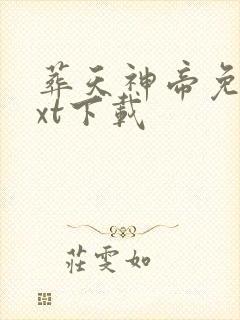 葬天神帝免
xt下載
莊雯如